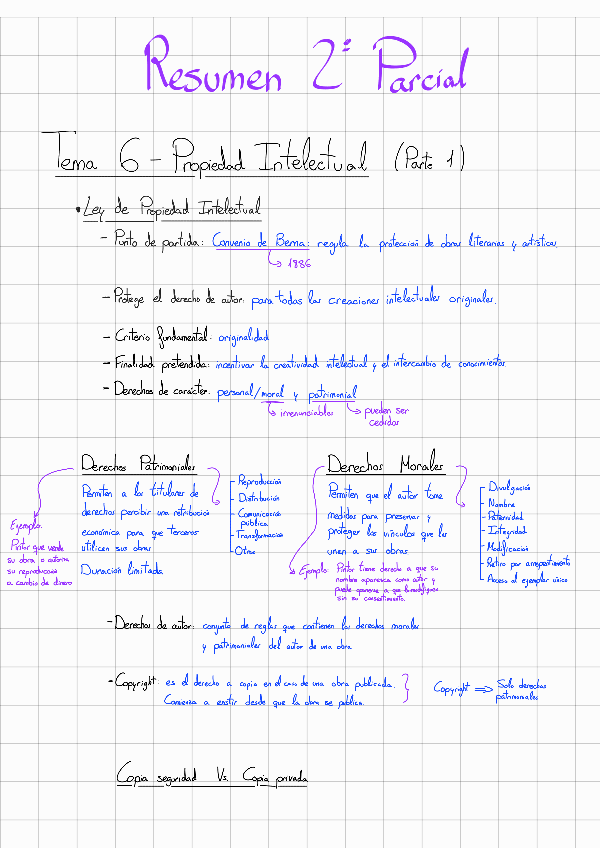 Resumen 2º Parcial
Tema 6 - Propiedad Intelectual (Parte 1)
• Ley de Propiedad Intelectual
- Punto de partida: Convenio de Berna: regula la protección de obras literarias y artísticas.
1886
- Protege el derecho de autor: para todas las creaciones intelectuales originales.
- Criterio fundamental: originalidad
- Finalidad pretendida: incentivar la creatividad intelectual y el intercambio de conocimientos
- Derechos de carácter: personal/moral y patrimonial
irrenunciables
pueden ser
cedidos
Derechos Patrimoniales
Permiten a los titulares de
derechos percibir una retribución
económica para que terceros
utilicen sus obras
Duración limitada
- Reproducción
- Distribución
- Comunicación
pública
- Transformación
- Otros
Ejemplo:
Pintor que vende
su obra o autoriza
su reproducción
a cambio de dinero
Derechos Morales
Permiten que el autor tome
medidas para preservar y
proteger los vínculos que los
unen a sus obras
- Divulgación
- Nombre
- Paternidad
- Integridad
- Modificación
- Retiro por arrepentimiento
- Acceso al ejemplar único
Ejemplo: Pintor tiene derecho a que su
nombre aparezca como autor y
puede oponerse a que la modifiquen
sin su consentimiento.
- Derechos de autor: conjunto de reglas que contienen los derechos morales
y patrimoniales del autor de una obra
- Copyright: es el derecho a copia en el caso de una obra publicada.
Comienza a existir desde que la obra se publica.
Copyright ⇒ Solo derechos
patrimoniales
Copia seguridad Vs. Copia privada